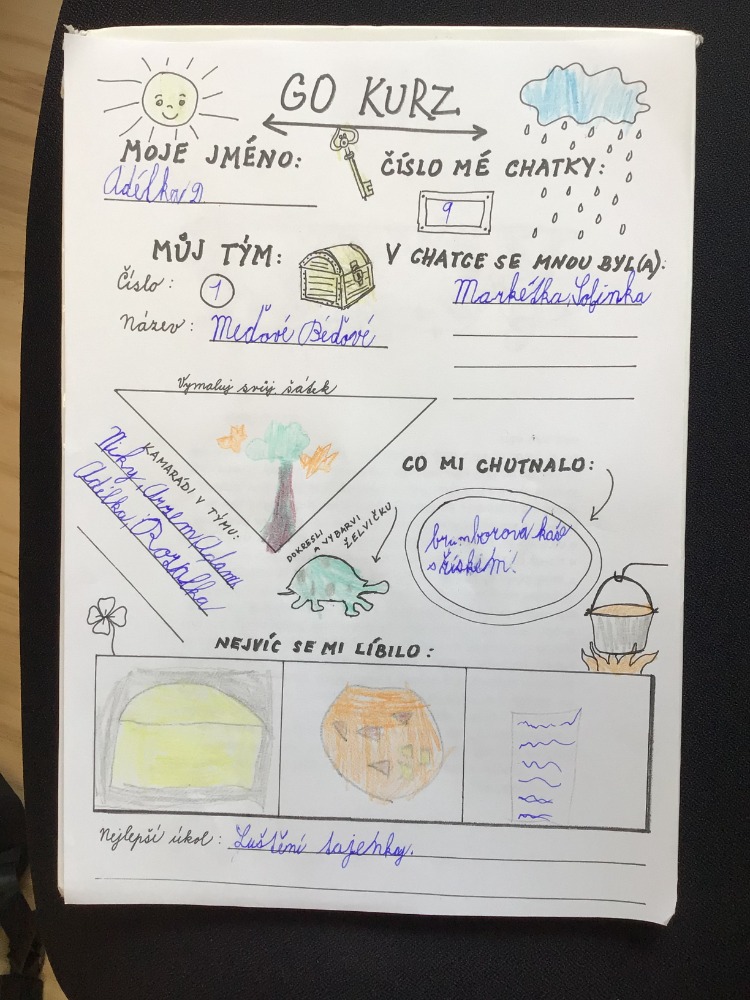 GO KURZ
MOJE JMÉNO:
Adélka D
ČÍSLO MÉ CHATKY:
9
MŮJ TÝM:
Číslo: 1
Název: Meďoví Béďové
V CHATCE SE MNOU BYL(A):
Markétka, Sofinka
Vymaluj svůj šátek
KAMARÁDI V TÝMU:
Niky, Artem, Adam
Adélka, Rozálka
DOKRESLI
A VYBARVI
ŽELVIČKU
CO MI CHUTNALO:
bramborová kaše
s řískem!
NEJVÍC SE MI LÍBILO:
Nejlepší úkol: Luštění tajenky.